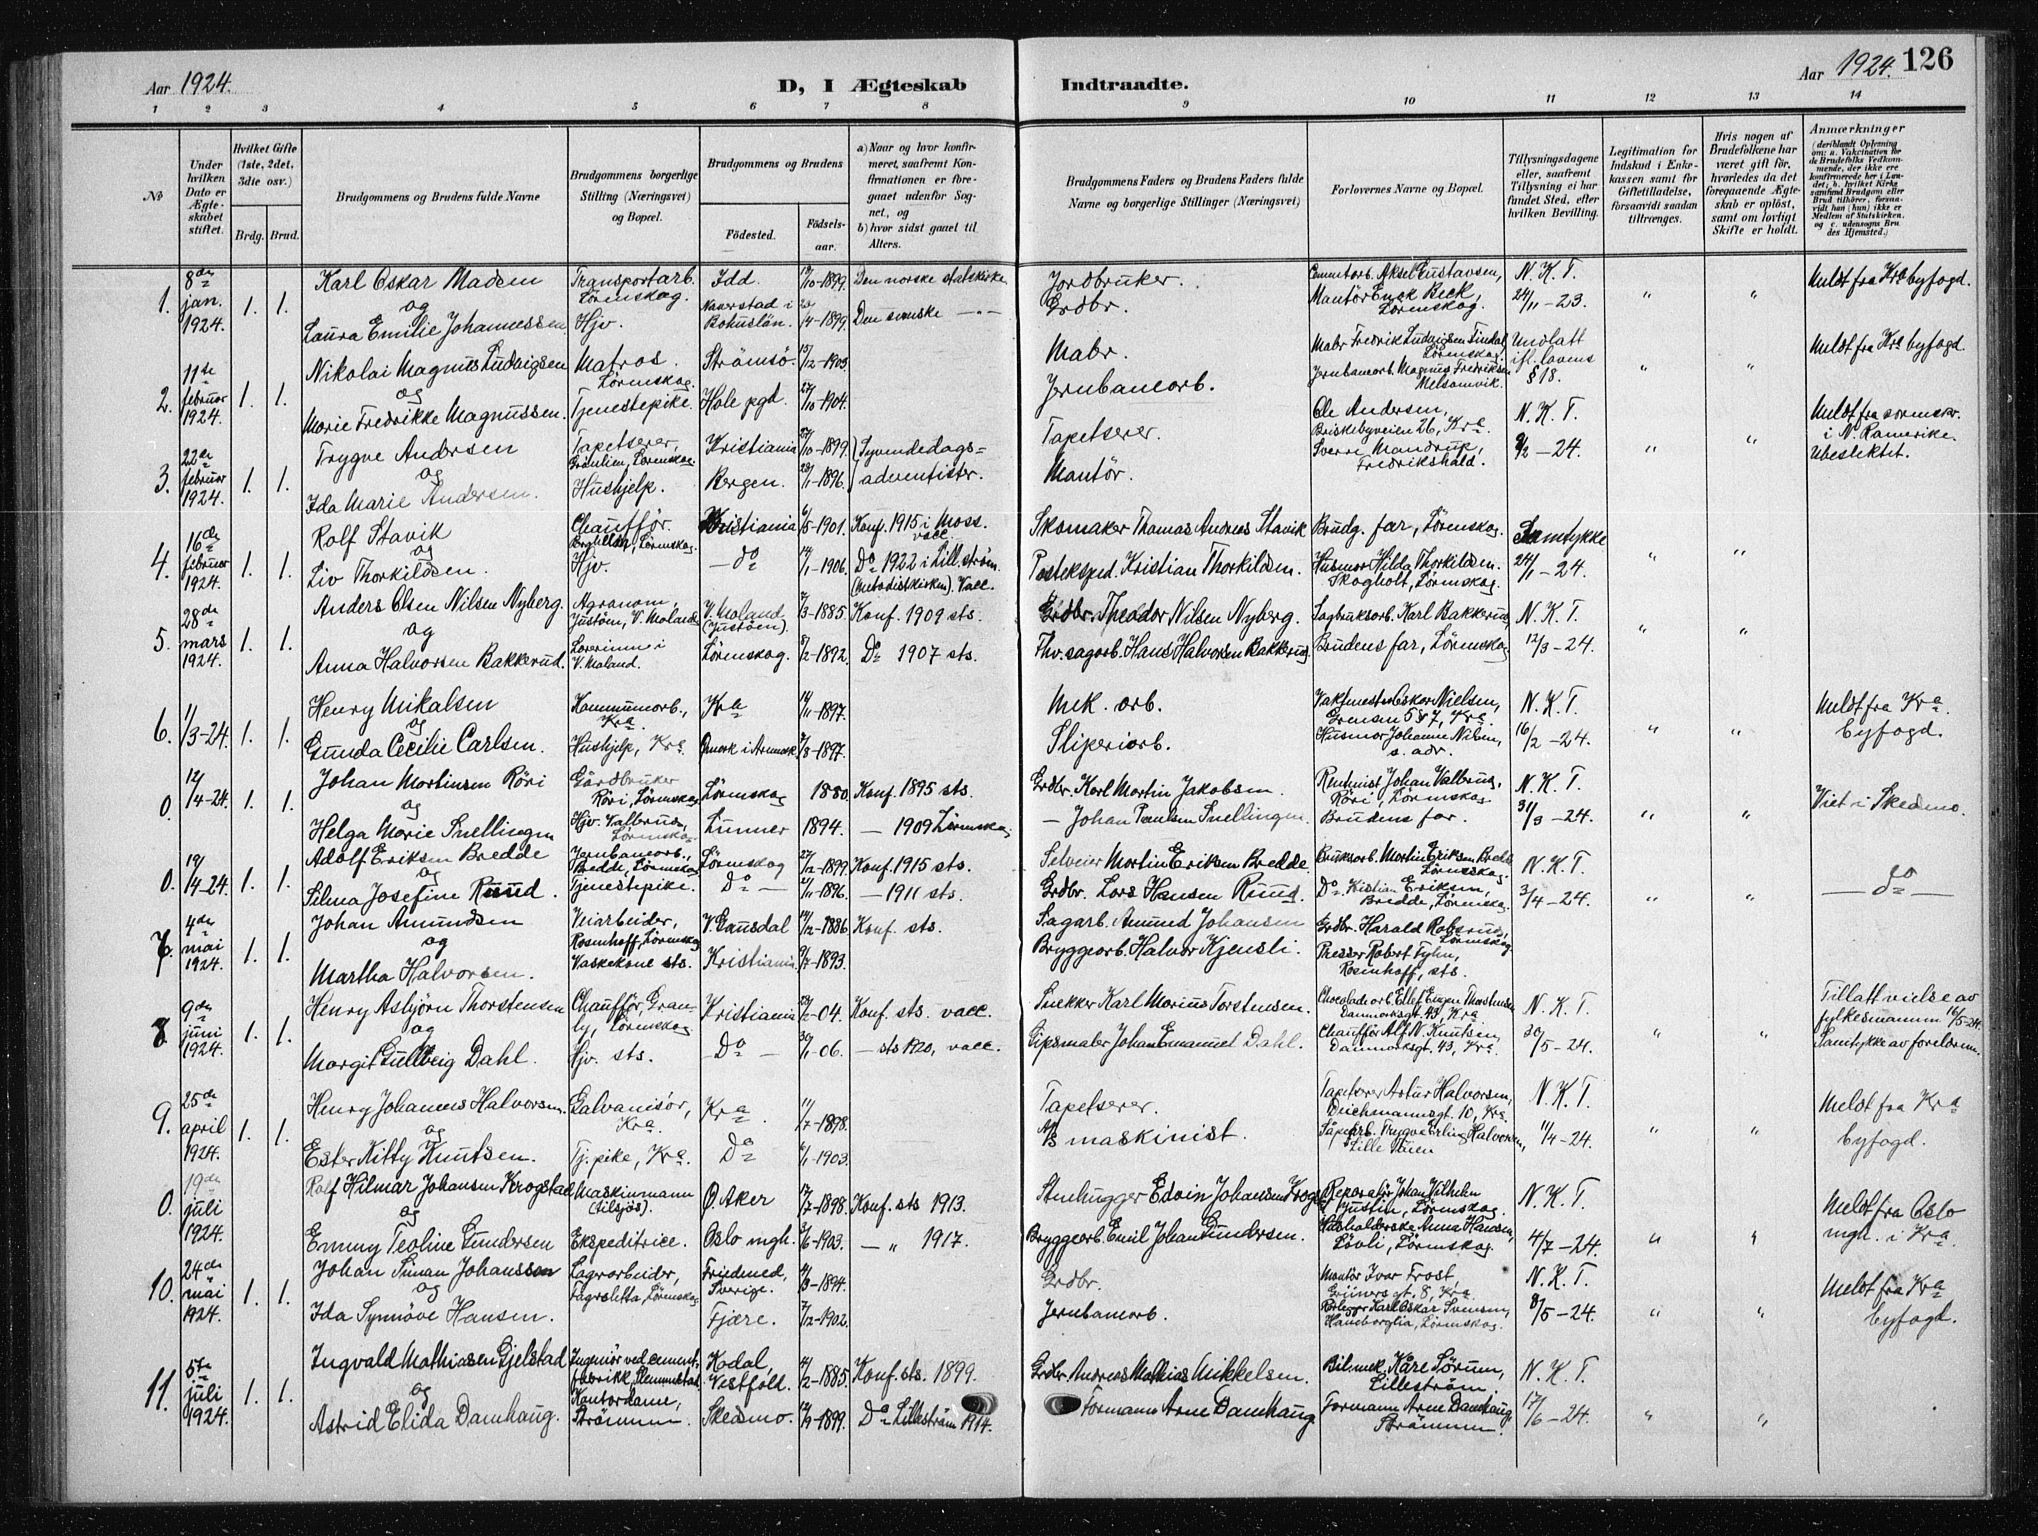 Aar 1924.
D, I Ægteskab
Indtraadte.
Aar 1924.
126
1 2 3 4 5 6 7 8 9 10 11 12 13 14
№
Under hvilken Dato er Ægteskabet stiftet.
Hvilket Gifte (1ste, 2det, 3die osv.)
Brdg. Brud.
Brudgommens og Brudens fulde Navne
Brudgommens borgerlige Stilling (Næringsvei) og Bopæl.
Brudgommens og Brudens
Fødested.
Fødselsaar.
a) Naar og hvor konfirmeret, saafremt Konfirmationen er foregaaet udenfor Sognet, og
b) hvor sidst gaaet til Alters.
Brudgommens Faders og Brudens Faders fulde Navne og borgerlige Stillinger (Næringsvei)
Forlovernes Navne og Bopæl.
Tillysningsdagene eller, saafremt Tillysning ei har fundet Sted, efter hvilken Bevilling.
Legitimation for Indskud i Enkekassen samt for Giftetilladelse, forsaavidt saadan tiltrænges.
Hvis nogen af Brudefolkene har været gift før, hvorledes da det foregaaende Ægteskab er opløst, samt om lovligt Skifte er holdt.
Anmærkninger
1. 8de jan. 1924. 1. 1.
Karl Oskar Madsen og Laura Emilie Johannessen
Transportarb. Lørenskog. Hjv.
Idd. Naverstad i Bohuslän.
-1899. -1899
Den norske statskirke
Den svenske — " —
Jordbruker. Grdbr.
Cementarb. Aksel Gustavsen,
Lørenskog.
N. K. T. 24/11 – 23.
" "
Meldt fra Kra byfogd.
2. 11te februar 1924. 1. 1.
Nikolai Magnus Ludvigsen og Marie Fredrikke Magnussen.
Matros. Lørenskog. Tjenestepike.
Strømsø. Hole pgd.
15/12-1903. 27/10-1904.
Mabr. Jernbanearb.
Jernbanearb. Magnus Fredriksen
Undlatt ifl. lovens § 18.
" "
Meldt fra Kra byfogd.
3. 22de februar 1924. 1. 1.
Trygve Andersen og Ida Marie Andersen.
Tapetserer, Lørenskog. Hushjelp.
Kristiania Bergen.
27/10-1899. -1896.
Syvendedags=adventister.
Tapetserer. Mantør.
Ole Andersen, Briskebyveien 26, Kra.
Sverre Mandrup, Fredrikshald.
N. K. T. 9/2 – 24.
" "
Meldt fra sorenskr. i N. Romerike. Ubeslektet.
4. 16de februar 1924. 1. 1.
Rolf Stavik og Liv Thorkildsen.
Chauffør. Lørenskog. Hjv.
Kristiania — Do —
6/5-1901. -1906.
Konf. 1915 i Moss. vacc.
Do 1922 i Lill.strøm (Metodistkirken). Vacc.
Skomaker Thomas Andreas Stavik
Posteksped. Kristian Thorkildsen.
Brudg. far, Lørenskog.
Husmor Hilda Thorkildsen. Skogholt, Lørenskog.
Samtykke 24/1 – 24.
" "
5. 28de mars 1924. 1. 1.
Anders Olsen Nilsen Nyberg. og Anna Halvorsen Bakkerud.
Agronom, Justøen, V. Moland. Lærerinne i V. Moland.
V. Moland (Justøen). Lørenskog.
-1885. -1892.
Konf. 1909 sts.
Do 1907 sts.
Grdbr. Theodor Nilsen Nyberg.
Fhv. sagarb. Hans Halvorsen Bakkerud.
Sagbruksarb. Karl Bakkerud,
Brudens far, Lørenskog
N. K. T. 12/3 – 24.
" "
6. 11/3-24. 1. 1.
Henry Mikalsen og Gunda Cecilie Carlsen.
Kommunearb., Kra Hushjelp, Kra.
Kra Ømark i Aremark
14/11-1897. -1897.
Mek. arb. Sliperiarb.
Vaktmester Oskar Nielsen, Grensen 5&7, Kra.
Husmor Johanne Nilsen, s. adr.
N. K. T. 16/2 – 24.
" "
Meldt fra Kra. byfogd.
0. 12/4-24. 1. 1.
Johan Martinsen Röri og Helga Marie Snellingen
Gårdbruker Röri, Lørenskog Hjv. Valbrud, Lørenskog.
Lørenskog Lunner
1880 1894.
Konf. 1895 sts.
— 1909 Lørenskog
Grdbr. Karl Martin Jakobsen.
— Johan Paulsen Snellingen
Rentenist Johan Valbrud, Röri, Lørenskog
Brudens far.
N. K. T. 31/3 – 24.
" "
Viet i Skedsmo.
0. 19/4-24. 1. 1.
Adolf Eriksen Bredde og Silma Josefine Ruud.
Jernbanearb., Bredde, Lørenskog Tjenestepike.
Lørenskog Do —
-1899. -1896.
Konf. 1915 sts.
— 1911 sts.
Selveier Martin Eriksen Bredde.
Grdbr. Lars Hansen Ruud.
Bruksarb. Martin Eriksen Bredde Lørenskog.
Do. Kristian Eriksen, Bredde, Lørenskog.
N. K. T. 3/4 – 24.
" "
— do —
7. 4de mai 1924. 1. 1.
Johan Amundsen og Martha Halvorsen.
Veiarbeider, Rosenhoff, Lørenskog Vaskekone sts.
V. Gausdal Kristiania
-1886 -1893.
Konf. sts.
Sagarb. Amund Johansen
Bryggearb. Halvor Kjensli.
Grdbr. Harald Robsrud, Lørenskog
Presser Robert Fyhn, Rosenhoff, sts.
8. 9de juni 1924. 1. 1.
Henry Asbjörn Thorstensen og Margit Gullveig Dahl.
Chauffør, Granly, Lørenskog Hjv. sts.
Kristiania Do —
-04. -06.
Konf. sts. vacc.
— sts 1920, vacc.
Snekker Karl Marius Torstensen.
Gipsmaler Johan Emanuel Dahl.
Chocoladearb. Ellef Eugen Thorstensen Danmarksgt. 43, Kra
Chauffør Alf N. Knutsen, Danmarksgt. 43, Kra.
N. K. T. 30/5 – 24.
" "
Tillatt vielse av fylkesmannen 16/5-24. Samtykke av foreldrene.
9. 25de april 1924. 1. 1.
Henry Johannes Halvorsen og Ester Kitty Knutsen.
Galvanisør, Kra. Tj. pike, Kra.
Kra Do
-1898. -1903.
Tapetserer. maskinist.
Tapetserer Artur Halvorsen, Deichmannsgt. 10, Kra.
N. K. T. 11/4 – 24.
" "
Meldt fra Kra byfogd.
0. 19de juli 1924.
Rolf Hilmar Johansen Krogstad og Emmy Teoline Gundersen
Maskinmann (tilsjøs). Ekspeditrice.
Ø. Aker Oslo mgh.
-1898. -1903.
Konf. sts 1913.
— " 1917.
Stenhugger Edvin Johansen
Bryggearb. Emil Johan Gundersen.
Reparatør Johan Vilhelm Justin, Lørenskog.
Husholderske Anna Hansen, Løvli, Lørenskog.
N. K. T. 4/7 – 24.
" "
Meldt fra Oslo mgh. i Kra.
10. 24de mai 1924. 1. 1.
Johan Simon Johansson og Ida Synnöve Hansen.
Lagerarbeider, Fagersletta, Lørenskog
Sverige. Fjære.
-1894. -1902.
Grdbr. Jernbanearb.
Mantør Ivar Frost, Grünersgt. 8, Kra.
Karl Oskar Svensen, Haneborglia, Lørenskog.
N. K. T. 8/5 – 24.
" "
Meldt fra Kra byfogd.
11. 5te juli 1924. 1. 1.
Ingvald Mathiasen Gjelstad og Astrid Elida Damhaug.
Ingeniør ved cementfabrikk, Slemmestad. Kontordame, Strømmen.
Kodal, Vestfold. Skedsmo.
-1885. -1899.
Konf. sts. 1899.
Do Lilleström 1914.
Grdbr. Andreas Mathias Mikkelsen.
Formann Arne Damhaug
Bilmek. Kåre Sörum, Lilleström,
Formann Arne Damhaug, Strømmen.
N. K. T. 17/6 – 24.
" "